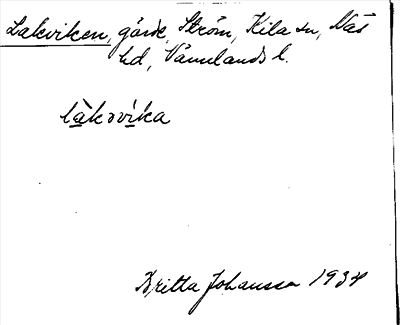 Lakviken, gårde, Ström, Kila sn, Näs
hd, Värmlands l.
làkəvika
Britta Johansson 1934